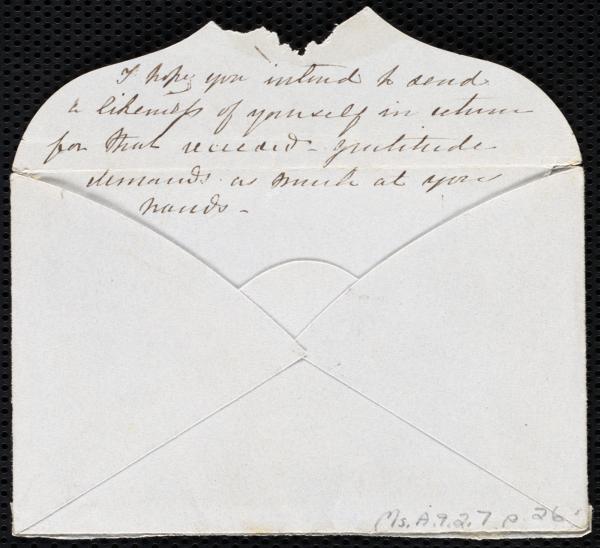 I hope you intend to send
a likeness of yourself in return
for that received - gratitude
demands as much at your
hands -
Ms. A. 9. 2. 7 p 26